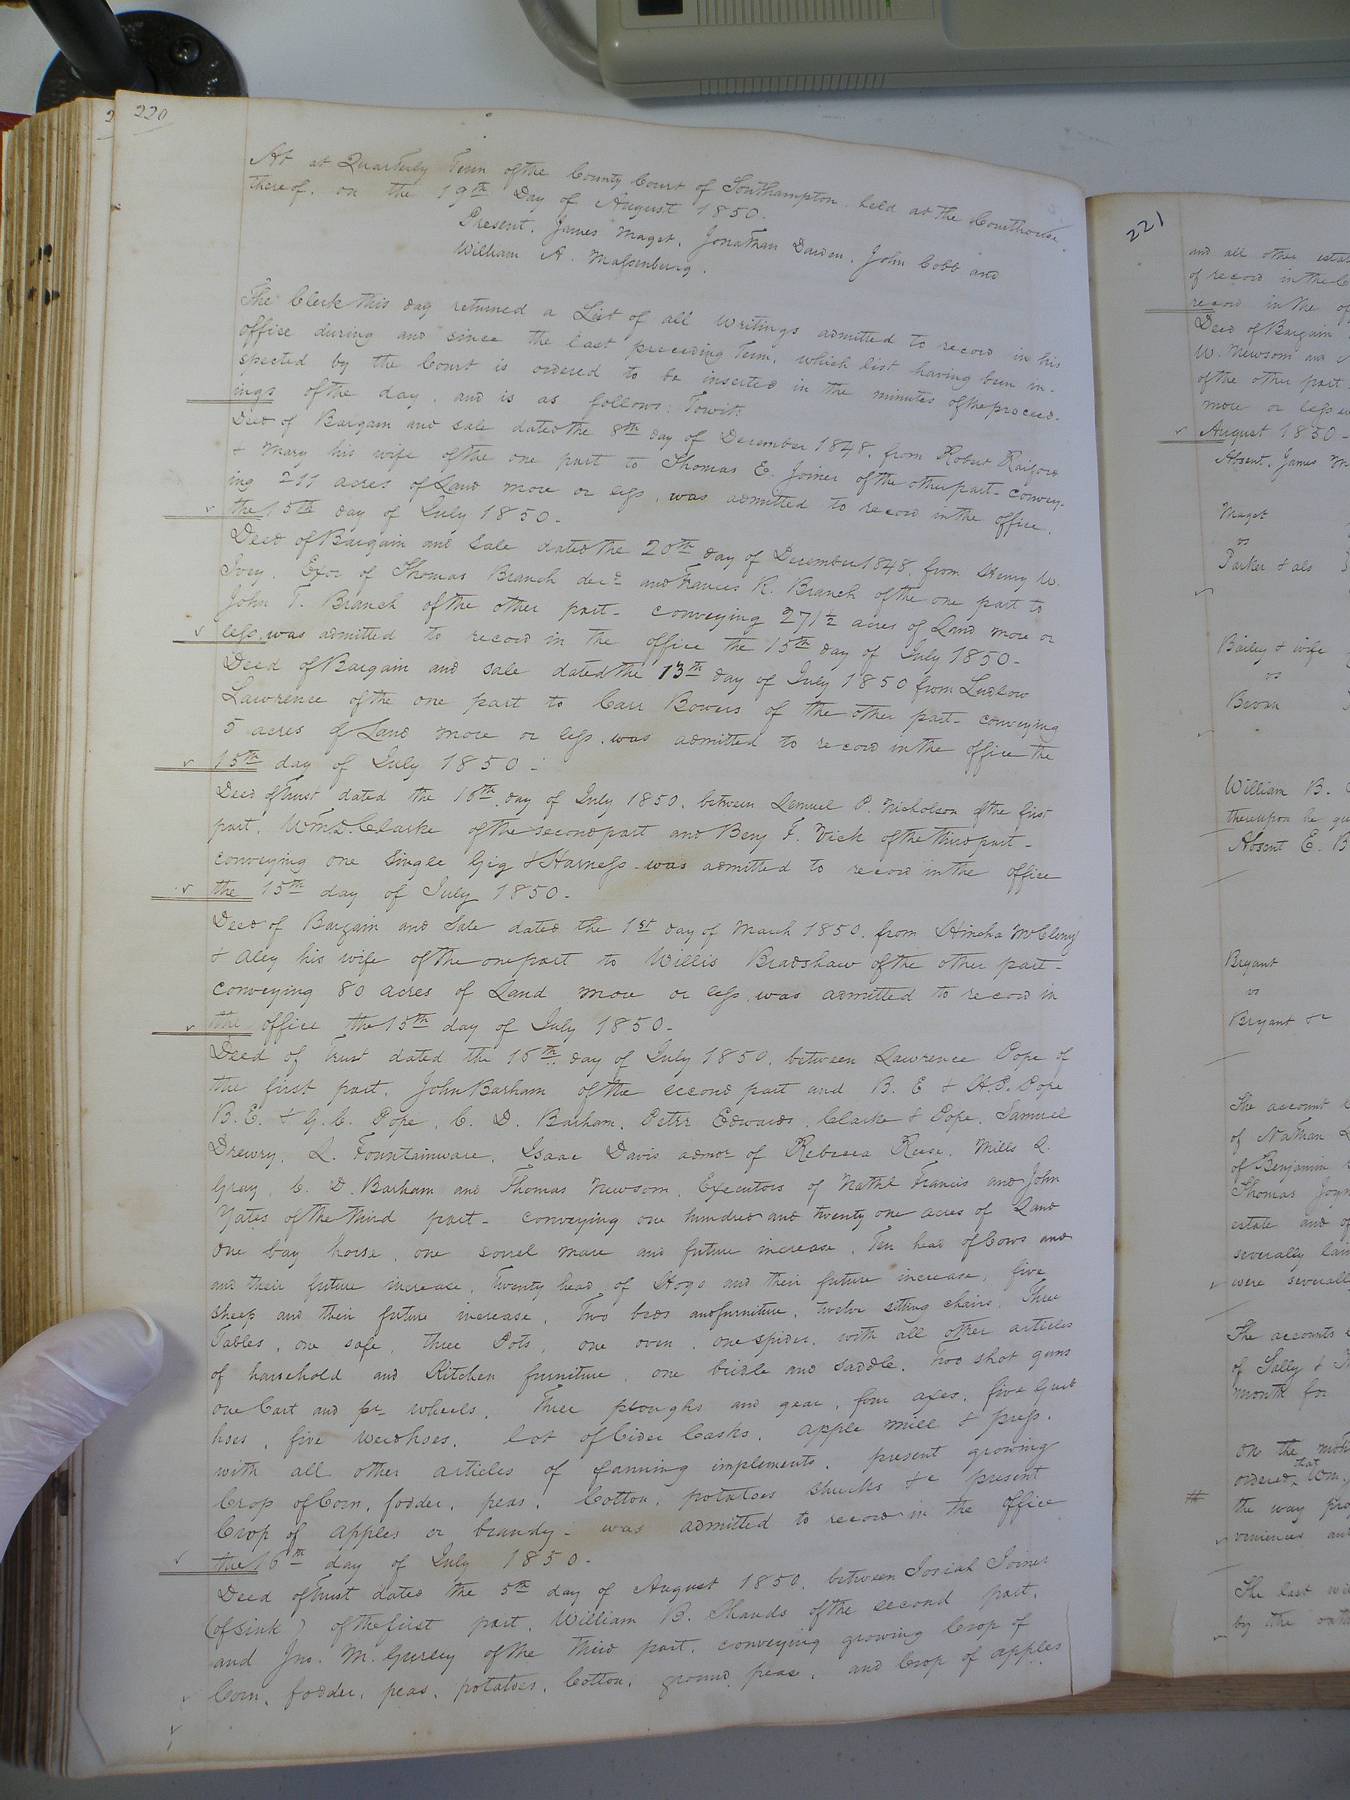 220
At at Quarterly Term of the County Court of Southampton held at the Courthouse
thereof, on the 19th Day of August 1850.
Present, James Maget, Jonathan Darden, John Cobb and
William A. Massenburg.
The Clerk this day returned a List of all writings admitted to record in his
office during and since the last preceding Term, which list having been in-
spected by the Court is ordered to be inserted in the minutes of the proceed-
ings of the day, and is as follows: Towit:
Deed of Bargain and sale dated the 8th day of December 1848, from Robert Raiford
& Mary his wife of the one part to Thomas E. Joiner of the other part - convey-
ing 211 acres of Land more or less, was admitted to record in the office,
the 15th day of July 1850 -
Deed of Bargain and Sale dated the 20th day of December 1848, from Henry W.
Ivey, Exor of Thomas Branch decd and Frances R. Branch of the one part to
John T. Branch of the other part - conveying 271½ acres of Land more or
less, was admitted to record in the office the 15th day of July 1850 -
Deed of Bargain and sale dated the 13th day of July 1850 from Ludlow
Lawrence of the one part to Carr Bowers of the other part - conveying
5 acres of Land more or less, was admitted to record in the office the
15th day of July 1850 -
Deed of Trust dated the 16th day of July 1850, between Lemuel P. Nicholson of the first
part, Wm D. Clarke of the second part and Benj F. Vick of the third part -
conveying one single Gig & Harness - was admitted to record in the office
the 15th day of July 1850 -
Deed of Bargain and Sale dated the 1st day of March 1850, from Hincha McCleny
& Aley his wife of the one part to Willis Bradshaw of the other part -
conveying 80 acres of Land more or less, was admitted to record in
the office the 15th day of July 1850 -
Deed of Trust dated the 15th day of July 1850, between Lawrence Pope of
the first part, John Barham of the second part and B. E & H. P. Pope
B. E. & G. C. Pope, C. D. Barham, Peter Edwards, Clarke & Pope, Samuel
Drewry, L. Fountainware, Isaac Davis admor of Rebecca Reese, Mills L.
Gray, C. D. Barham and Thomas Newsom, Executors of Nathl Francis and John
Yates of the third part - conveying one hundred and twenty one acres of Land
one bay horse, one sorrel mare and future increase, Ten head of Cows and
and their future increase, Twenty head of Hogs and their future increase, five
Sheep and their future increase, Two beds and furniture, twelve sitting chairs, Three
Tables, one safe, three Pots, one oven, one spider, with all other articles
of household and Kitchen furniture, one bridle and saddle, Two shot guns
one Cart and pr wheels, Three ploughs and gear, four axes, five Grub
hoes, five weedhoes, lot of Cider Casks, apple mill & press,
with all other articles of farming implements, present growing
Crop of Corn, fodder, peas, Cotton, potatoes shucks &c present
Crop of apples or brandy - was admitted to record in the office
the 16th day of July 1850 -
Deed of Trust dated the 5th day of August 1850, between Josiah Joiner
(of Sink) of the first part, William B. Shands of the second part,
and Jno. M. Gurley of the third part, conveying growing Crop of
Corn, fodder, peas, potatoes, Cotton, ground peas, and Crop of apples
221
and all other esta
of record in the C
record in the of
Deed of Bargain
W. Newsom and
of the other part
more or less w
August 1850 -
Absent, James M
Maget
vs
Parker & als
Bailey & wife
vs
Bevan
William B.
thereupon he
Absent E. B
Bryant
vs
Bryant
The account
of Nathan
of Benjamin
Thomas Joyn
estate and of
severally
were severally
The accounts
of Sally &
month for
On the moti
ordered that Wm.
the way pro
veniences and
The last wi
by the oath